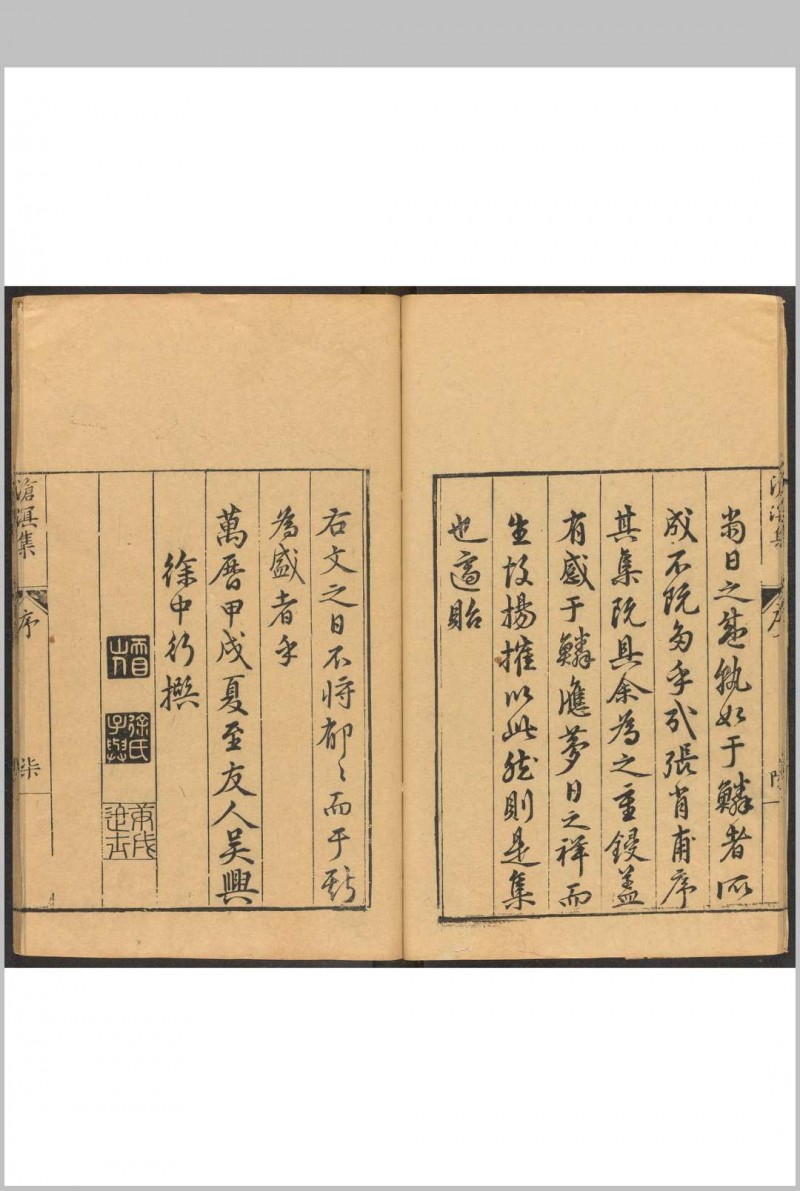 當日之
孰如于鱗者所
成不既多乎哉張肖甫序
其集既具余為之重鋟蓋
有感于鱗應夢日之祥而
生故揚搉以此然則是集
也適貽
滄溟集
序
柒
右文之日不將郁〻而于斯
為盛者乎
萬曆甲戌夏至友人吳興
徐中行撰
徐氏子與
庚戌進士